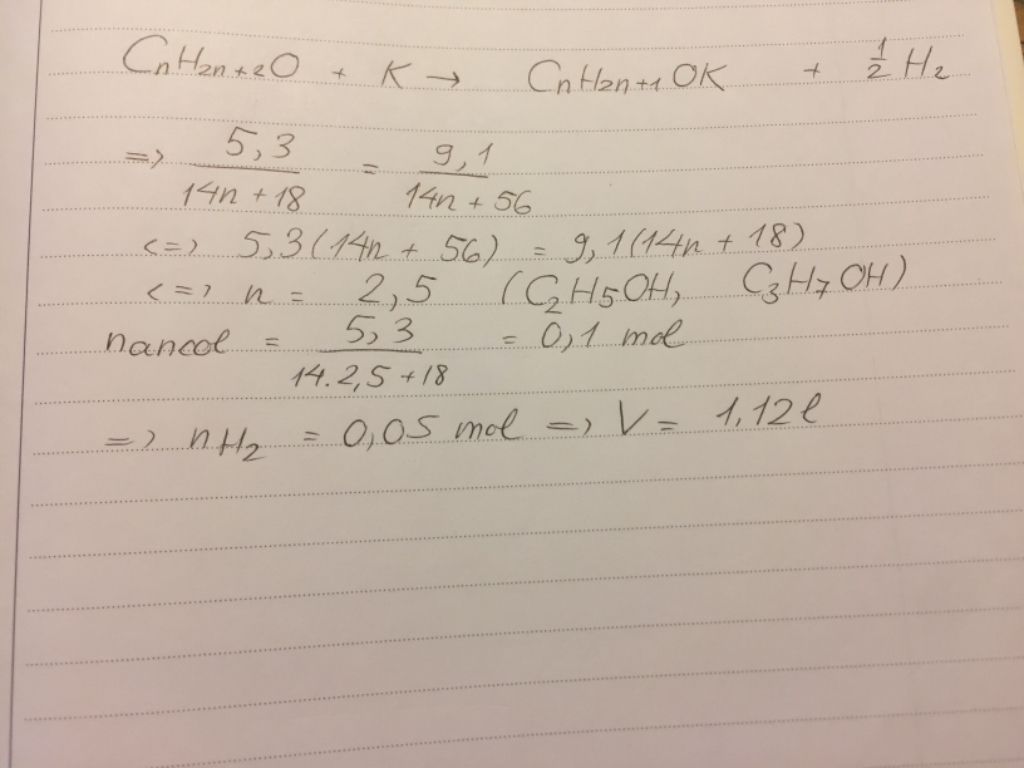 CnH2n+2O + K → CnH2n+1OK + 1/2 H2
=> 5,3/(14n + 18) = 9,1/(14n + 56)
<=> 5,3(14n + 56) = 9,1(14n + 18)
<=> n = 2,5 (C2H5OH, C3H7OH)
nancol = 5,3/(14.2,5 + 18) = 0,1 mol
=> nH2 = 0,05 mol => V = 1,12l